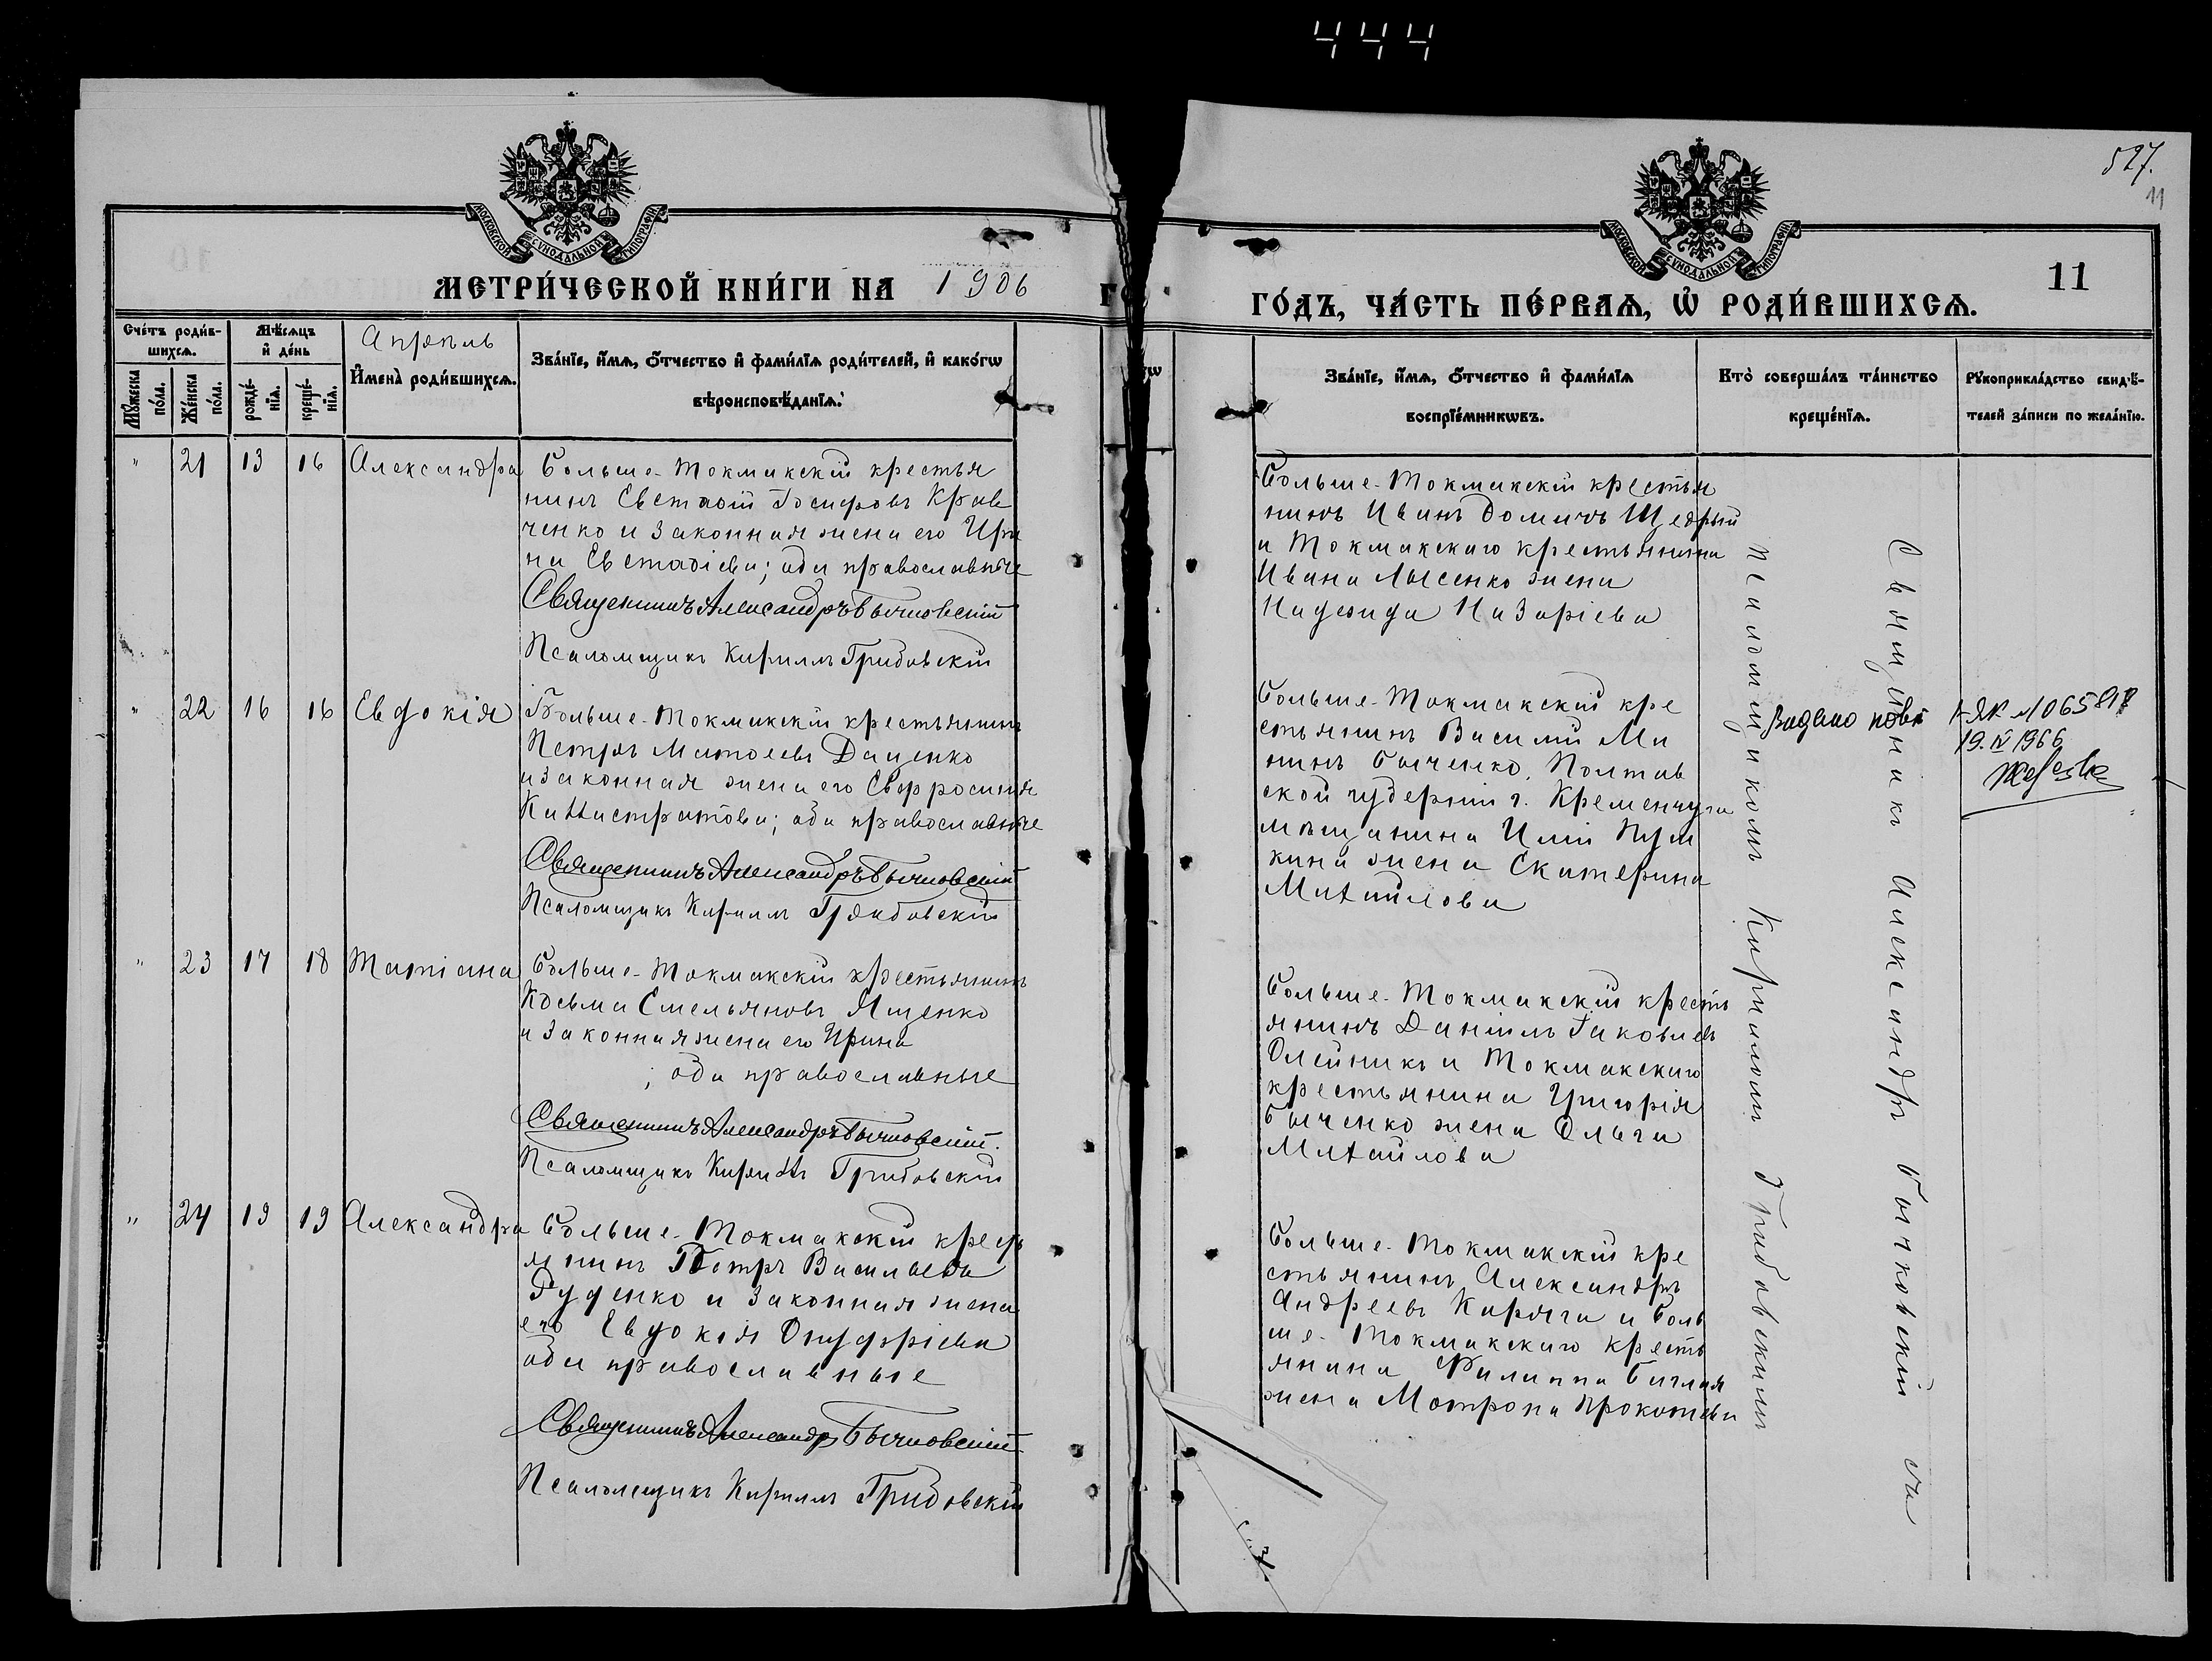 444
527.
11
МОСКОВСКОЙ СѴНОДАЛЬНОЙ ТИПОГРАФІИ
МОСКОВСКОЙ СѴНОДАЛЬНОЙ ТИПОГРАФІИ
МЕТРИ́ЧЕСКОЙ КНИ́ГИ НА 1906
ГО́ДЪ, ЧА́СТЬ ПЕ́РВАѦ, Ѡ҆ РОДИ́ВШИХСѦ.
11
Сче́тъ роди́в-
шихсѧ.
Мꙋ́жеска по́ла.
Же́нска по́ла.
Мѣ́сѧцъ
и҆ де́нь
рожде́-
нїѧ.
креще́-
нїѧ.
Апрѣль
И҆мена̀ роди́вшихсѧ.
Зва́нїе, и҆́мѧ, ѻ҆́тчество и҆ фами́лїѧ роди́телей, и҆ како́гѡ
вѣроисповѣ́данїѧ.
Зва́нїе, и҆́мѧ, ѻ҆́тчество и҆ фами́лїѧ
воспрїе́мникѡвъ.
Кто̀ соверша́лъ та́инство
креще́нїѧ.
Рꙋкоприкла́дство свидѣ́-
телей за́писи по жела́нїю.
" 21 13 16 Александра
Больше-Токмакскій крестья
нинъ Евстафій Іосифовъ Крав
ченко и законная жена его Ири
на Евстафіева; оба православные
Священникъ Александръ Бычковскій
Псаломщикъ Кириллъ Грибовскій
Больше-Токмакскій крестья
нинъ Иванъ Фомичъ Щедрый
и Токмакскаго крестьянина
Ивана Лысенко жена
Надежда Назаріева
" 22 16 16 Евдокія
Больше-Токмакскій крестьянинъ
Петръ Матѳеевъ Даценко
и законная жена его Евфросинія
Каллистратова; оба православные
Священникъ Александръ Бычковскій
Псаломщикъ Кириллъ Грибовскій
Больше-Токмакскій кре
стьянинъ Василій Ми
нинъ Бытченко, Полтав
ской губерніи г. Кременчуга
мѣщанина Иліи
жена Екатерина
Михайлова
Видано повт I-ЯР
19.IV 1966
" 23 17 18 Татіана
Больше-Токмакскій крестьянинъ
Косьма Емельяновъ Ященко
и законная жена его Ирина
; оба православные
Священникъ Александръ Бычковскій.
Псаломщикъ Кириллъ Грибовскій
Больше-Токмакскій кресть
янинъ Даніилъ Іаковлевъ
Олейникъ и Токмакскаго
крестьянина Григорія
Бытченко жена Ольга
Михайлова
" 24 19 19 Александра
Больше-Токмакскій кресть
янинъ Петръ Васильевъ
Руденко и законная жена
его Евдокія Онуфріева
оба православные
Священникъ Александръ Бычковскій
Псаломщикъ Кириллъ Грибовскій
Больше-Токмакскій кре
стьянинъ Александръ
Андреевъ Каряга и Боль
ше-Токмакскаго кресть
янина Филиппа
жена Матрона Прокопіева
Священникъ Александръ Бычковскій съ
псаломщикомъ Кирилломъ Грибовскимъ